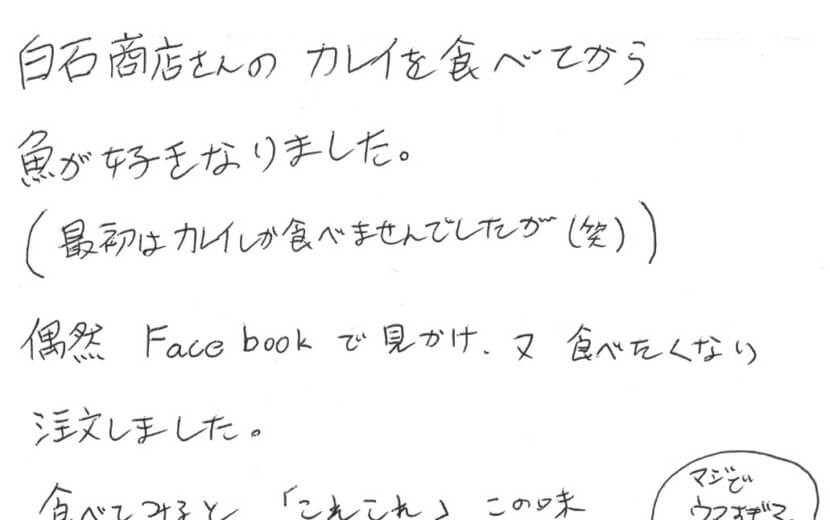 白石商店さんの カレイを食べてから
魚が好きなりました。
(最初はカレイしか食べませんでしたが(笑))
偶然 Facebookで見かけ、又 食べたくなり
注文しました。
食べてみると 「これこれ」 この味
マジで